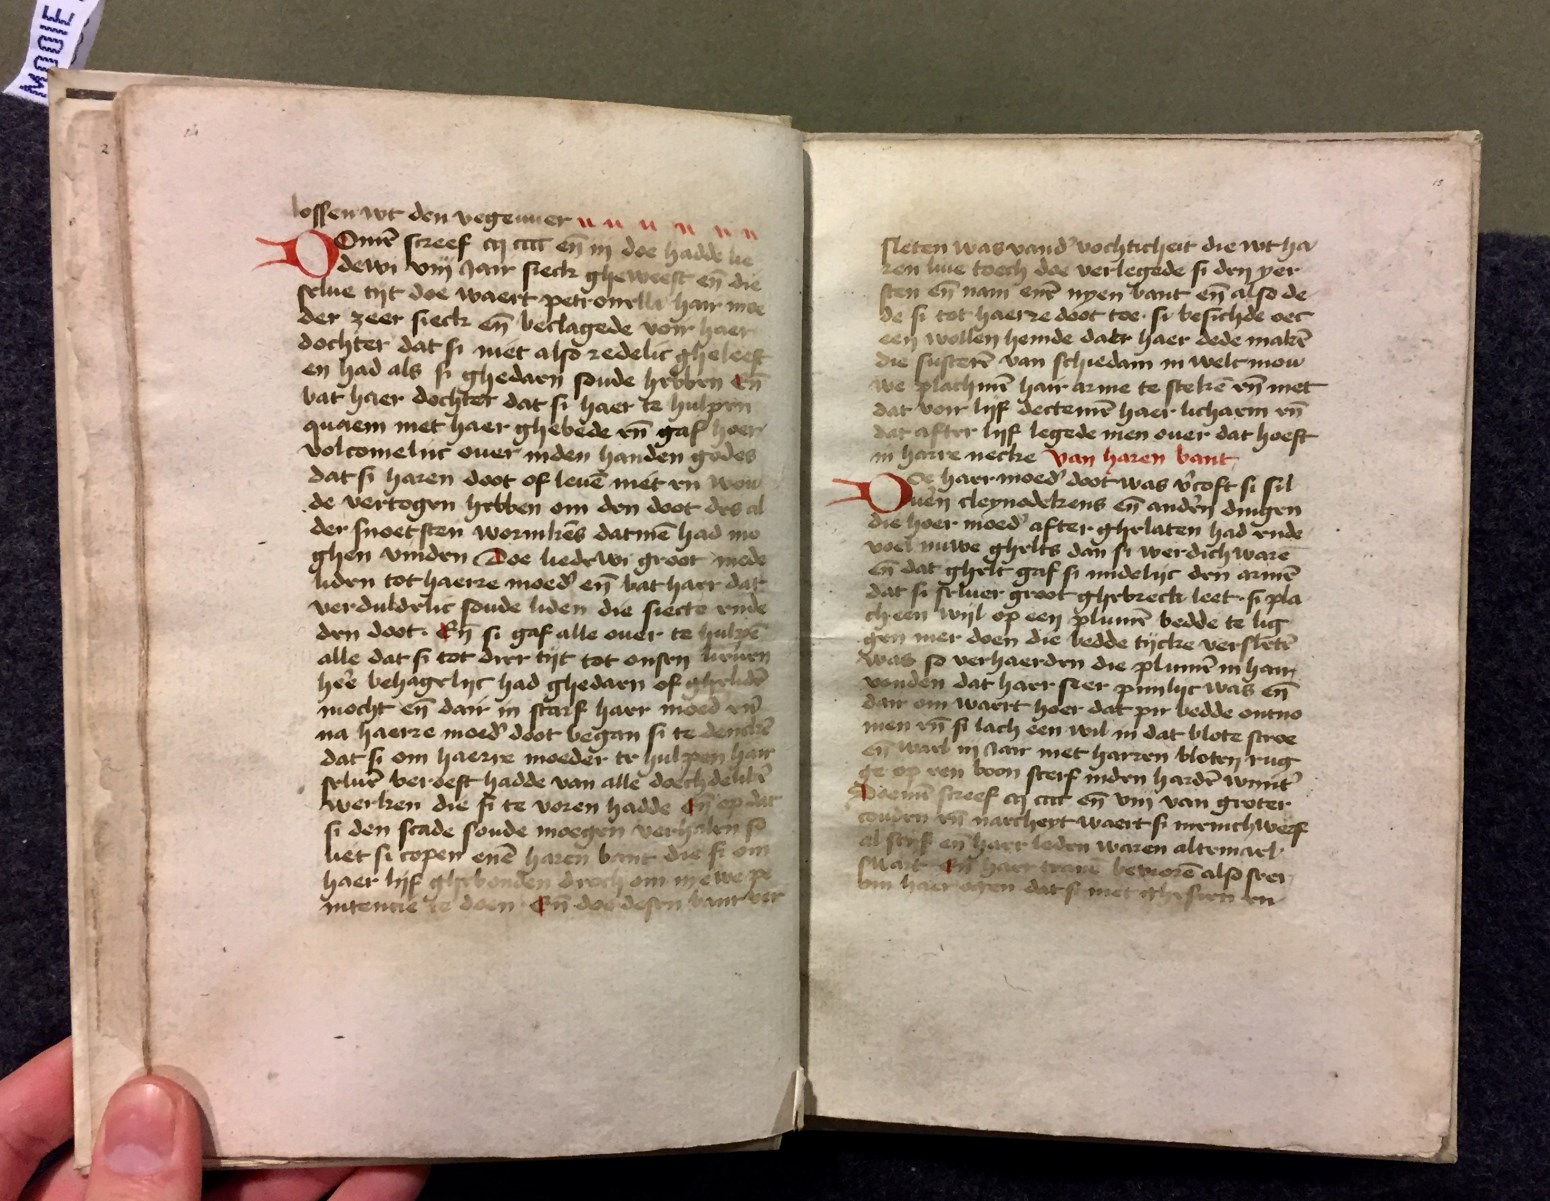 MOOIE
2
14
lossen wt den vegevuer
Doemē screef cij cccc eñ iij doe hadde lie
dewi viij Jair sieck gheweest eñ die
selue tijt doe waert petronella hair moe
der zeer sieck eñ beclagede voir haer
dochter dat si niet also redelic gheleeft
en had als si ghedaen soude hebben Eñ
bat haer dochter dat si haer te hulpen
quaem met haer ghebede eñ gaf hoer
volcomelijc ouer inden handen godes
dat si haren doot of leuē niet en wou
de vertogen hebben om den doot des al
der snoetsten wormkēs datmē had mo
ghen vinden Doe liedewi groot mede
liden tot haerre moed' eñ bat haer dat
verduldelic soude liden die siecte ende
den doot. Eñ si gaf alle ouer te hulpē
alle dat si tot dier tijt tot onsen lieuen
hēre behagelijc had ghedaen of gheledē
mocht eñ dair in starf haer moed' eñ
na haerre moed' doot began si te denckē
dat si om haerre moeder te hulpen hair
seluē beroeft hadde van alle doechdelikē
werken die si te voren hadde Eñ op dat
si den scade soude moegen verhalen so
liet si copen enē haren bant die si om
haer lijf ghebonden droech om nyewe pe
nitencie te doen. Eñ doe desen bant ver
15
sleten was vand' vochticheit die wt ha
ren liue toech doe verlegede si den yer
sten eñ nam enē nyen bant eñ also de
de si tot haerre doot toe. si besichde oec
een wollen hemde dat haer dede makē
die susterē van schiedam in welc mou
we plachmē hair arme te stekē eñ met
dat voir lijf decktemē haer lichaem eñ
dat after lijf legede men ouer dat hoeft
in harre necke Van haren bant
Doe haer moed' doot was v'coft si sil
ueren cleynodekens eñ and'en dingen
die hoer moed' after ghelaten had ende
voel nuwe ghelts dan si werdich ware
eñ dat ghelt gaf si mildelijc den armē
dat si seluer groot ghebreck leet. si pla
ch een wijl op een plumē bedde te lig
gen mer doen die bedde tijcke verslētē
was so verhaerden die plumē in ham
vonden dat haer seer pijnlijc was eñ
dair om waert hoer dat bedde ontno
men eñ si lach een wil in dat blote stroe
eñ wael iij Jair met harren bloten rug
ge op een boon sterf inden hardē wint'
Doemē screef cij cccc eñ viij van groter
couden eñ narcheyt waert si menichwerf
al stijf eñ haer leden waren altemael
swart Eñ haer tranē bevroren also seer
bin haer ogen dat si niet ghesien en